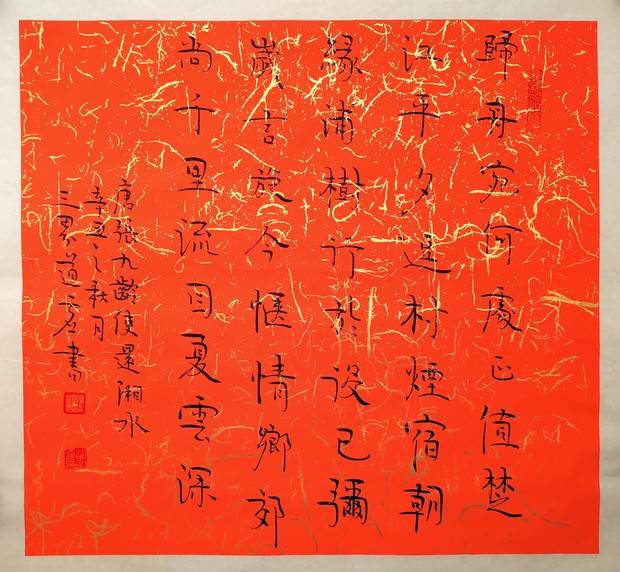 歸舟宛何處正值楚
江平夕逗村煙宿朝
緣浦樹行於役已彌
歲言旋今愜情鄉郊
尚千里流目夏雲深
唐張九齡使還湘水
辛丑之秋月
三界道書